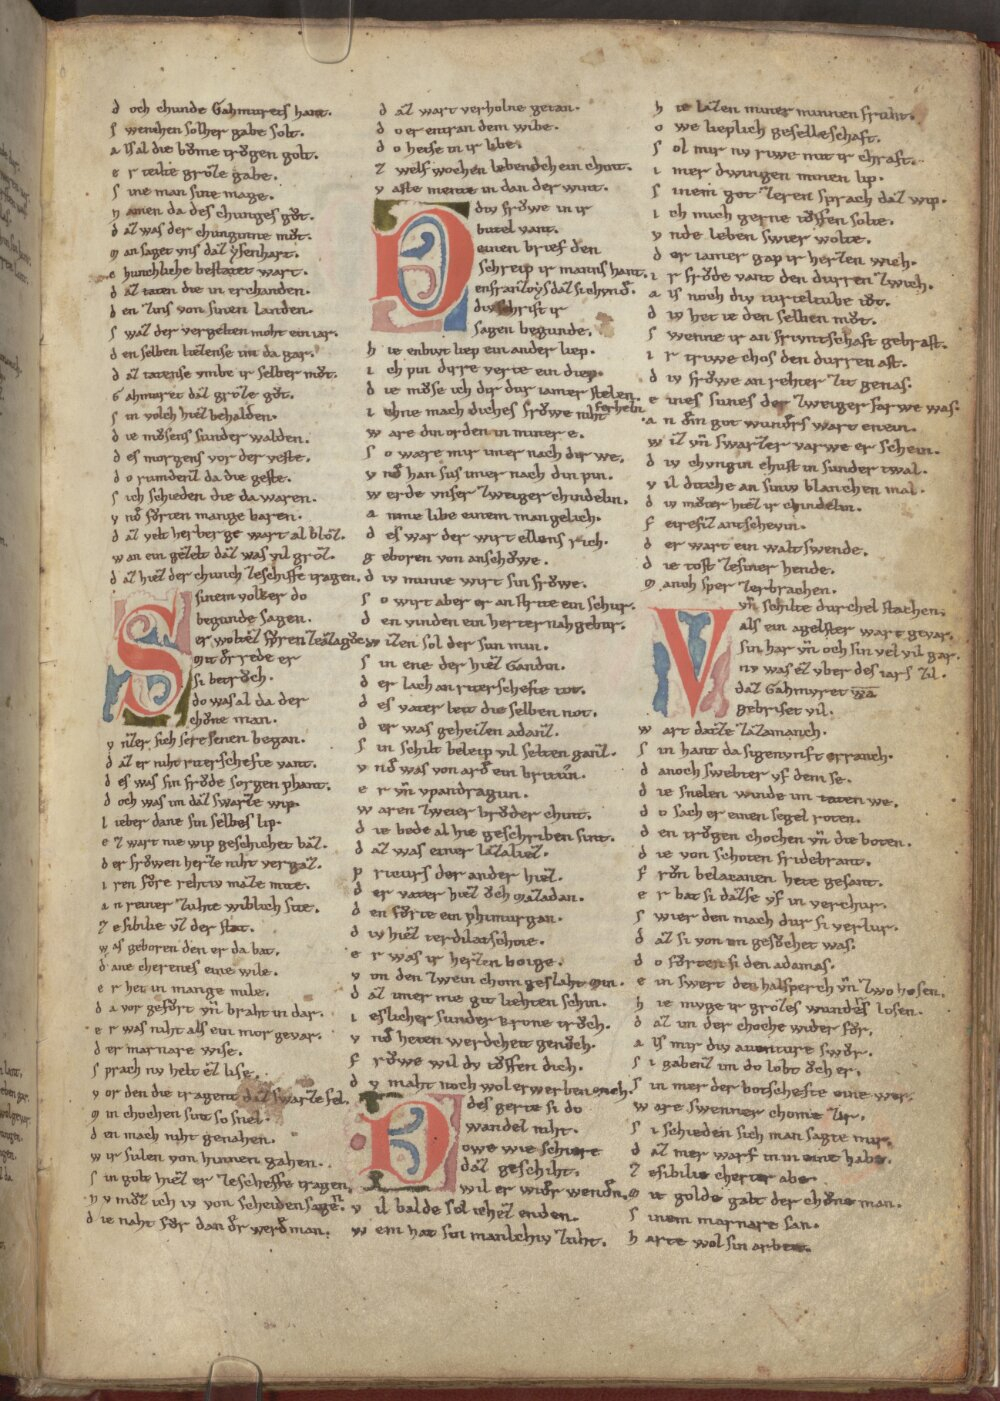 d och chunde Gahmurets hant.
s wenchen solher gabe solt.
a lsal die bovme trůgen golt.
e r teilte groͤze gabe.
s ine man sine mage.
n amen da des chunges gůt.
d az was der chunginne můt.
m an saget vns daz ysenhart.
e hunchliche bestatet wart.
d az taten die in erchanden.
d en zins von sinen landen.
s waz der vergelten moht ein iar.
d en selben liezense im da gar.
d az tatense vmbe ir selber můt.
G ahmuret daz groͤze gůt.
s in volch hiez behalden.
d ie můsens sunder walden.
d es morgens vor der veste.
d o rumdenz da die geste.
s ich schieden die da waren.
v nd fůrten mange baren.
d az velt herberge wart al bloz.
w an ein gezelt daz was vil groz.
d az hiez der chunch ze schiffe tragen.
Sinem volker do
begunde sagen.
er woltez fůren ze azagouc
mit der rede er
si betrouch.
do was al da der
chůne man.
v nzer sich sere senen began.
d az er niht riterschefte vant.
d es was sin froͤde sorgen phant.
d och was im daz swarze wip.
l ieber dane sin selbes lip.
e z wart nie wip geschichet baz.
d er frowen herze niht vergaz.
i ren fůre rehtiv maze mite.
a n reiner zuhte wiblich site.
z e sibilie vz der stat.
w as geborn den er da bat.
d ane cherenes eine wile.
e r het in mange mile.
d a vor gefůrt vn̄ braht in dar.
e r was niht als ein mor gevar.
d er marnare wise.
s prach nv helt ez lise.
v or den die tragent daz swarze fel.
m in chochen sint so snel.
d en mach niht genahen.
w ir sulen von hinnen gahen.
s in golt hiez er ze scheffe tragen.
n v můz ich iv von scheiden sagen.
d ie naht fůr dan der werd man.
d az wart verholne getan.
d o er entran dem wibe.
d o hetse in ir libe.
z welf wochen lebendch ein chint.
v aste mente in dan der wint.
Div frowe in ir
butel vant.
einen brief den
schreip ir manns hant.
en franzoys daz si chvnd.
div schrift ir
sagen begunde.
h ie enbivt liep ein ander liep.
i ch pin dirre verte ein diep.
d ie můse ich dir dur iamer stelen.
i chne mach diches frowe niht verheln
w are din orden in miner e.
s o ware mir imer nach dir we.
v nd han sus imer nach din pin.
w erde vnser zweiger chindelin.
a nime libe einem man gelich.
d es war der wirt ellens rich.
g eboren von anschowe.
d iv minne wirt sin frowe.
s o wirt aber er an strite ein schur.
d en vinden ein herter nahgebur.
w izen sol der sun min.
s in ene der hiez Gandin.
d er lach an riterschefte tot.
d es vater leit die selben not.
d er was geheizen adanz.
s in schilt beleip vil selten ganz.
v nd was von ard ein brittun.
e r vn̄ vpandragun.
w aren zweier bruder chint.
d ie bede al hie geschriben sint.
d az was einer lazaliez.
p rieurs der ander hiez.
d er vater hiez ouch mazadan.
d en fůrte ein phimurgan.
d iv hiez terdilatschoie.
e r was ir herzen boige.
v on den zwein chom geslaht min.
d az imer me git liehten schin.
i eslicher sunder krone trůch.
v nd heten werdcheit genůch.
f rowe wil dv touffen dich.
d v maht noch wol erwerben mich.
Des gerte si do
wandel niht.
owe wie schiere
daz geschiht.
wil er wider wenden
v il balde sol ichez enden.
w em hat sin manlchiv zuht.
h ie lazen miner minnen fruht.
o we lieplich geselleschaft.
s ol mir nv riwe mit ir chraft.
i mer dwingen minen lip.
s inem got zeren sprach daz wip.
i ch mich gerne toͮffen solte.
v nde leben swier wolte.
d er iamer gap ir herzen wich.
i r froͤde vant den durren zwich.
a ls noch div turteltube tůt.
d iv het ie den selben můt.
s wenne ir an frivntschaft gebrast.
i r triwe chos den durren ast.
d iv frowe an rehter zit genas.
e ines sunes der zweiger farwe was.
a n dem got wunders wart enein.
w iz vn̄ swarzer varwe er schein.
d iv chvngin chust in sunder twal.
v il dicche an siniv blanchen mal.
d iv můter hiez ir chindelin.
f eirefiz antschevin.
d er wart ein waltswende.
d ie tiost zesiner hende.
m anch sper zerbrachen.
vn̄ schilte durchel stachen.
als ein agelster wart gevar.
sin har vn̄ och sin vel vil gar.
nv was ez vber des iars zil.
daz Gahmuret wā
gebriset vil.
w art datze zazamanch.
s in hant da sigenvnft erranch.
d anoch swebter vf dem se.
d ie snelen winde im taten we.
d o sach er einen segel roten.
d en trůgen chochen vn̄ die boten.
d ie von schoten fridebrant.
f rovn belacanen hete gesant.
e r bat si dazse vf in verchur.
s wier den mach dur si verlur.
d az si von im gesůchet was.
d o fůrten si den adamas.
e in swert den halsperch vn̄ zwo hosen.
h ie mvge ir grozes wunders losen.
d az im der choche wider fůr.
a ls mir div aventure swůr.
s i gabenz im do lobt ouch er.
s in mer der botschefte eine wer.
w are swenner chome zir.
s i schieden sich man sagte mir.
d az mer warf in in eine habe.
z esibilie cherter abe
m it golde galt der chůne man.
s inem marnare san.
h arte wol sin arbeit.